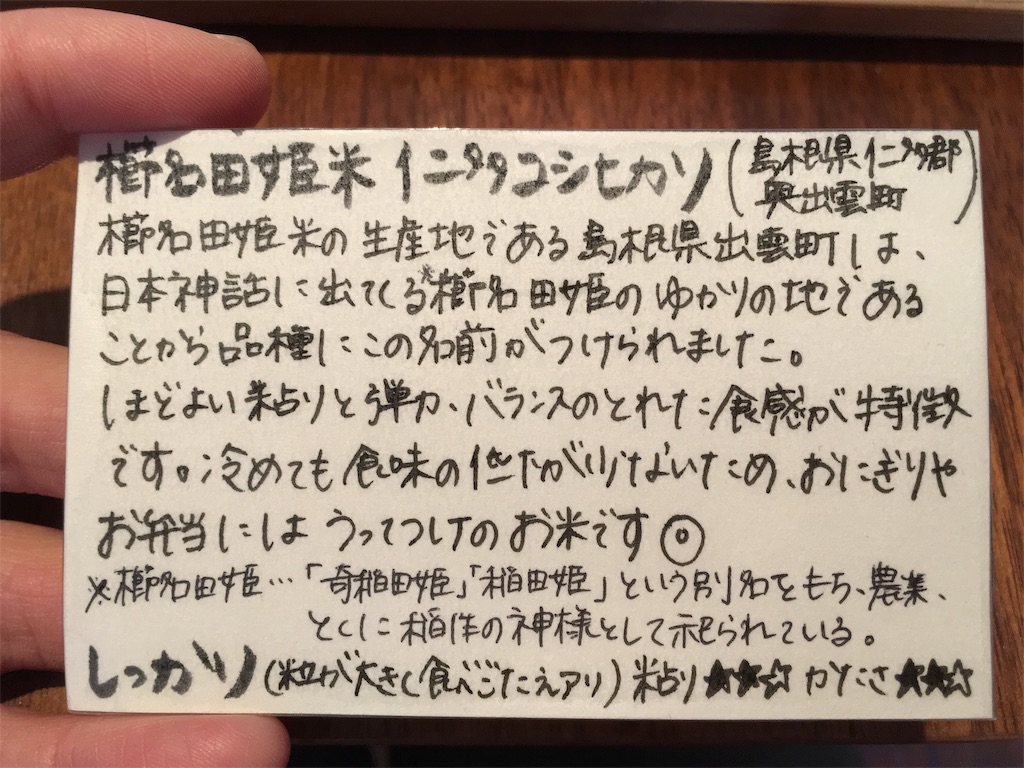 櫛名田姫米 仁多コシヒカリ (島根県仁多郡
奥出雲町)
櫛名田姫米の生産地である島根県出雲町は、
日本神話に出てくる※櫛名田姫のゆかりの地である
ことから品種にこの名前がつけられました。
ほどよい粘りと弾力、バランスのとれた食感が特徴
です。冷めても食味の低下が少ないため、おにぎりや
お弁当にはうってつけのお米です◎
※櫛名田姫…「奇稲田姫」「稲田姫」という別名をもち、農業、
とくに稲作の神様として祀られている。
しっかり (粒が大きく食べごたえアリ) 粘り★★☆ かたさ★★☆